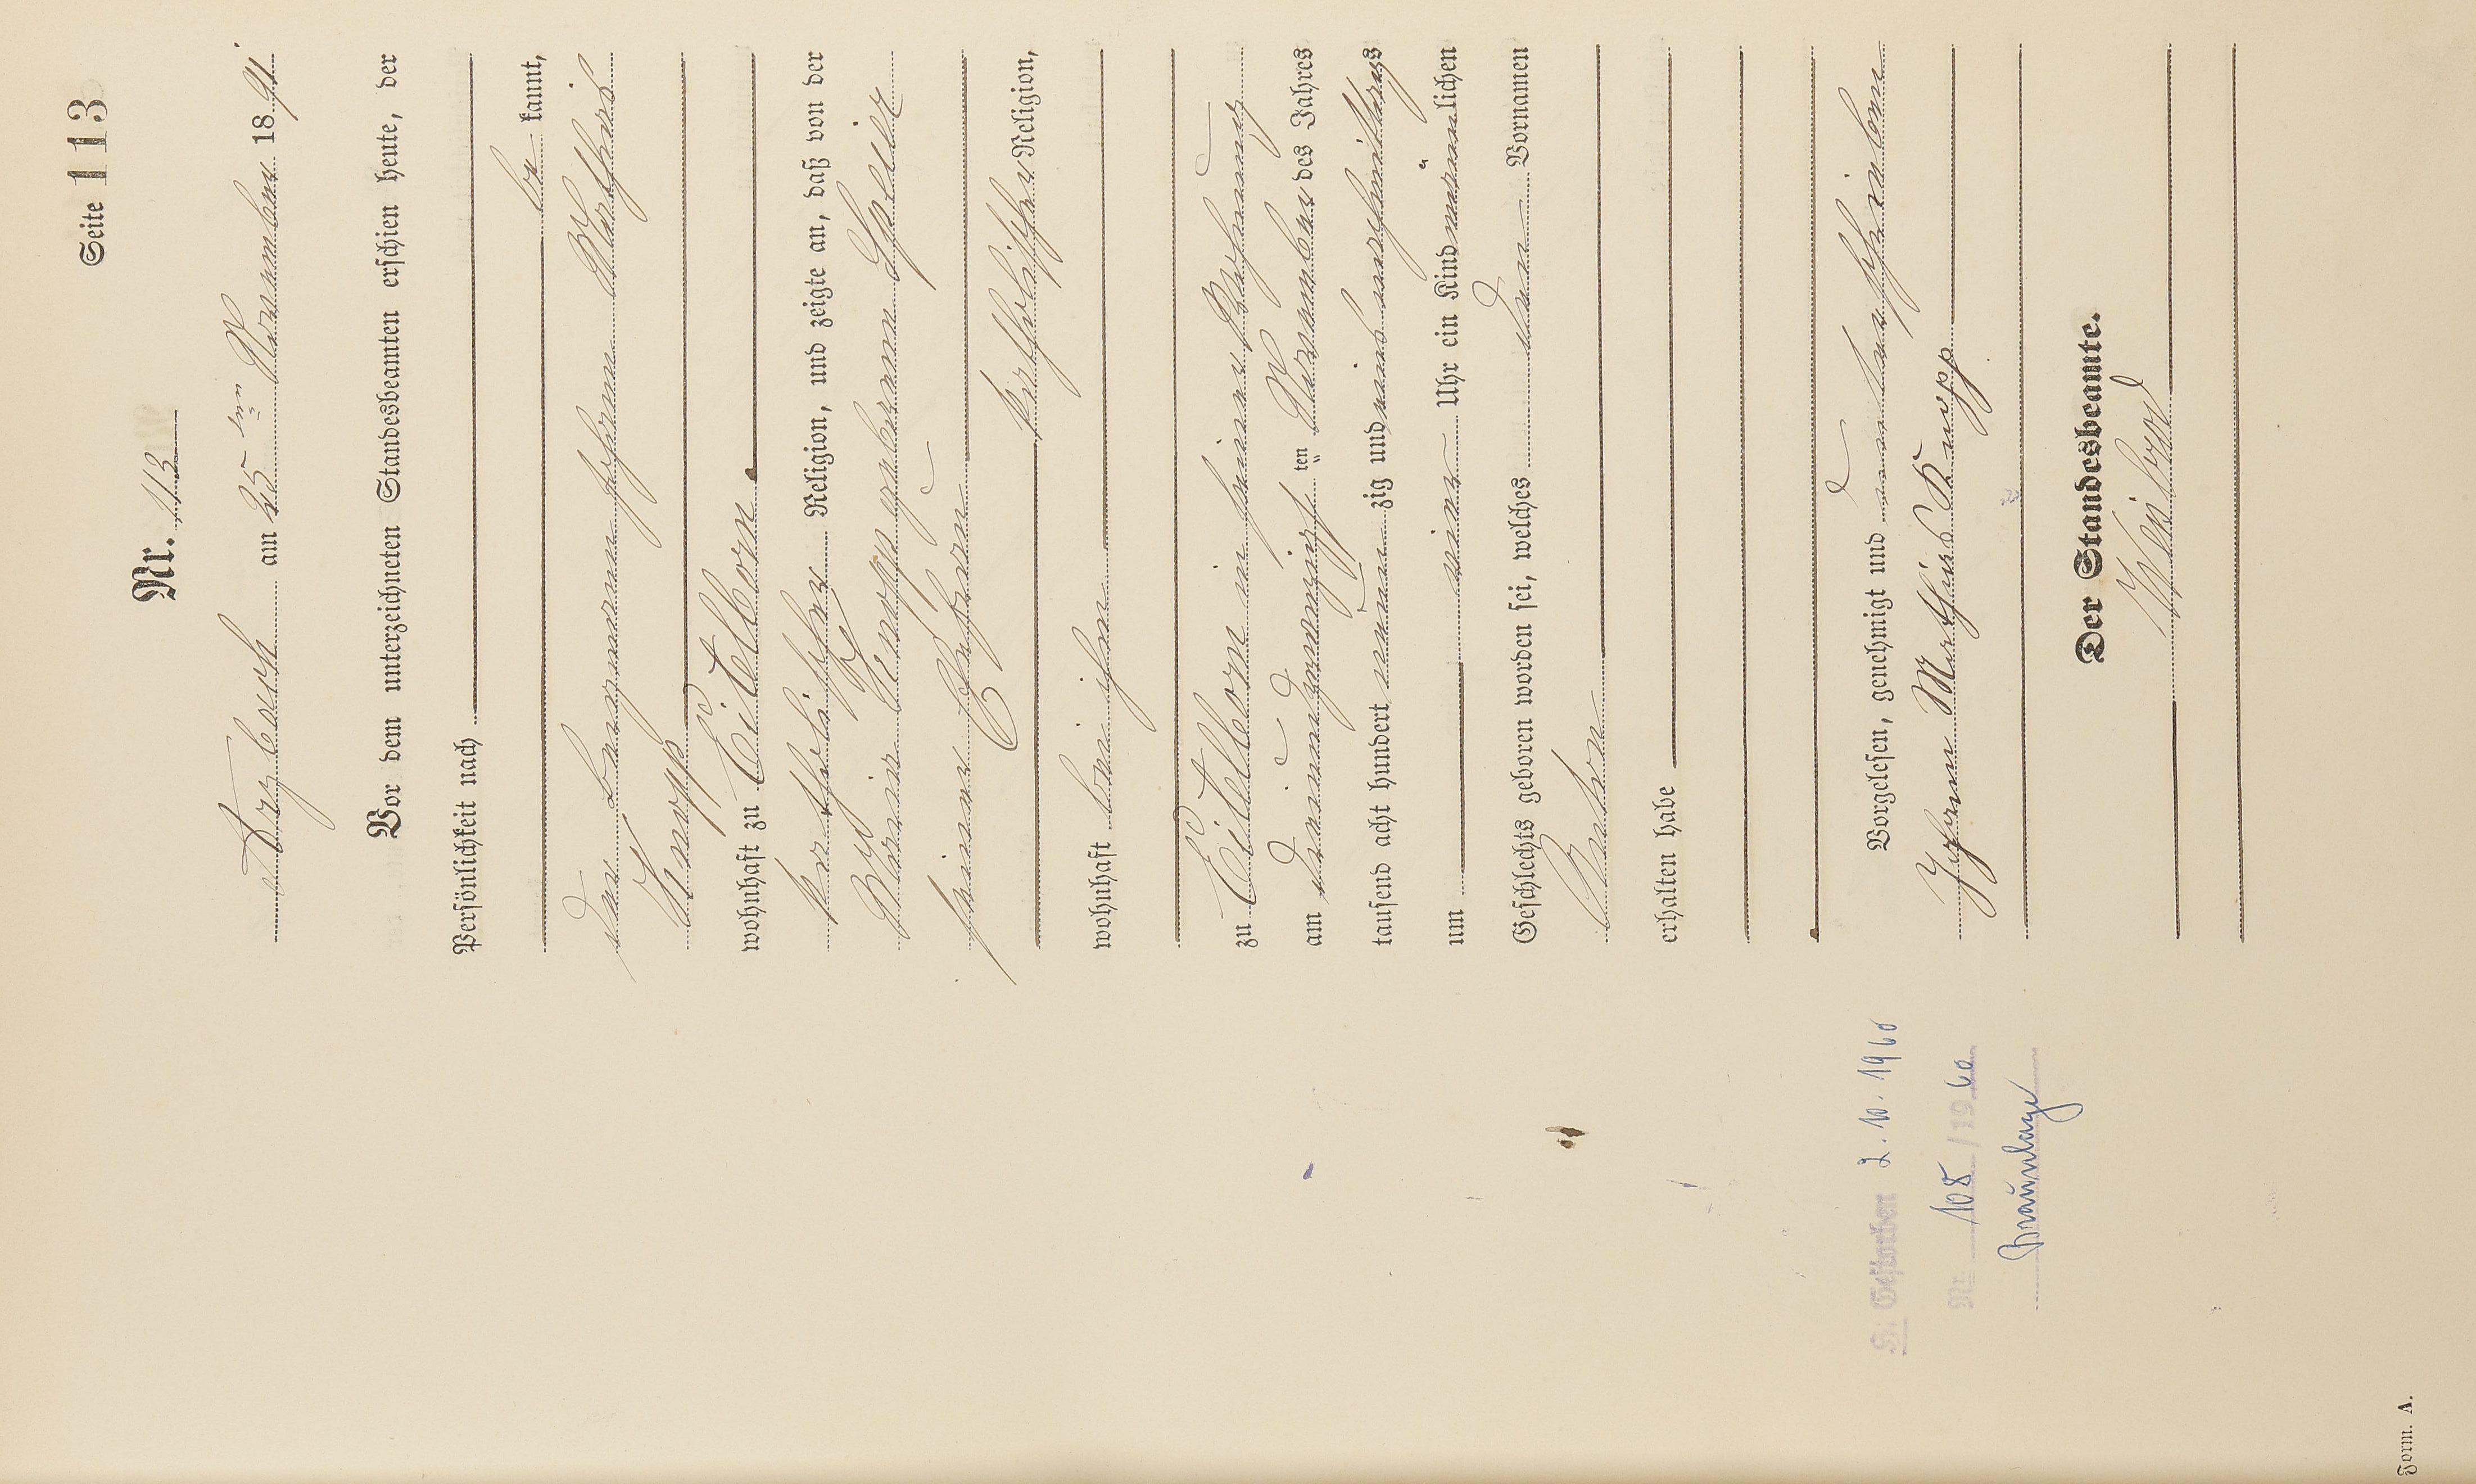 Seite 113
Nr. 113
Arzbach am 25ten November 1891.
Vor dem unterzeichneten Standesbeamten erschien heute, der
Persönlichkeit nach
be kannt,
der Bergmann Johann Mathias
Knopp
wohnhaft zu Eitelborn
katholischer Religion, und zeigte an, daß von der
Maria Knopp geborenen Speier
seiner Ehefrau
katholischer Religion,
wohnhaft bei ihm
zu Eitelborn in seiner Wohnung
am dreiundzwanzigsten November des Jahres
tausend acht hundert neun zig und eins
um Uhr ein Kind männlichen
Geschlechts geboren worden sei, welches den Vornamen
Anton
erhalten habe
Vorgelesen, genehmigt und unterschrieben
Johann Mathias Knopp
Der Standesbeamte.
Gestorben 2.10.1960
Nr. 108/1960
Braunlage
Form. A.